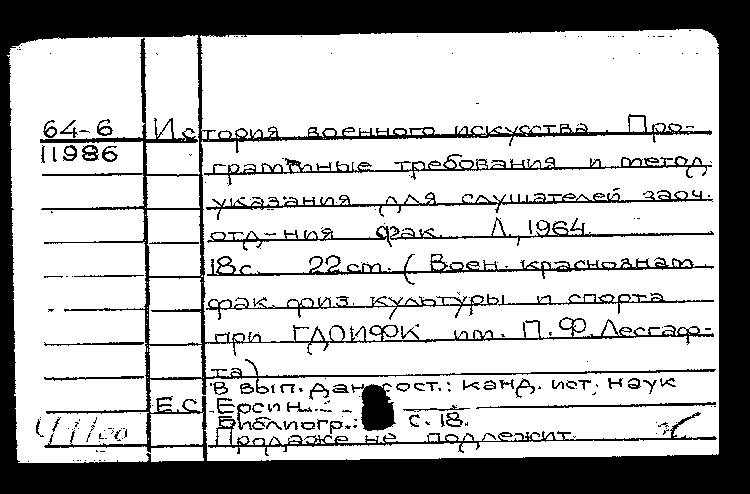 64-6 История военного искусства. Про-
11986 граммные требования и метод.
указания для слушателей заоч.
отд-ния фак. Л., 1964.
18с. 22см. (Воен. краснознам.
фак. физ. культуры и спорта
при ГДОИФК им. П.Ф. Лесгаф-
та)
В вып. дан. сост.: канд. ист. наук
Е.С. Ерсин.
Библиогр.: с. 18.
Продаже не подлежит.